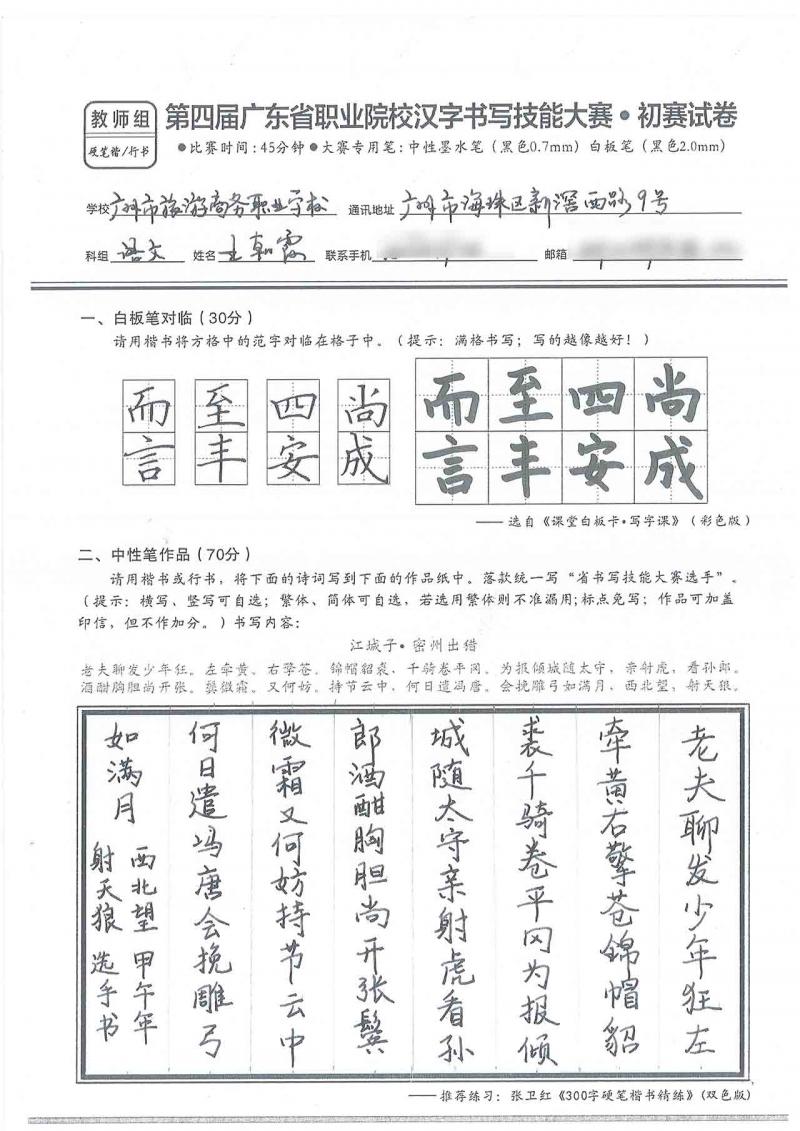 教师组
硬笔楷/行书
第四届广东省职业院校汉字书写技能大赛·初赛试卷
●比赛时间:45分钟●大赛专用笔:中性墨水笔(黑色0.7mm) 白板笔(黑色2.0mm)
学校 广州市旅游商务职业学校 通讯地址 广州市海珠区新滘西路9号
科组 语文 姓名 王朝霞 联系手机 邮箱
一、白板笔对临(30分)
请用楷书将方格中的范字对临在格子中。(提示:满格书写;写的越像越好!)
而 至 四 尚 而 至 四 尚
言 丰 安 成 言 丰 安 成
——选自《课堂白板卡·写字课》(彩色版)
二、中性笔作品(70分)
请用楷书或行书,将下面的诗词写到下面的作品纸中。落款统一写“省书写技能大赛选手”。
(提示:横写、竖写可自选;繁体、简体可自选,若选用繁体则不准漏用;标点免写;作品可加盖
印信,但不作加分。)书写内容:
江城子·密州出猎
老夫聊发少年狂。左牵黄。右擎苍。锦帽貂裘,千骑卷平冈。为报倾城随太守,亲射虎,看孙郎。
酒酣胸胆尚开张。鬓微霜。又何妨。持节云中,何日遣冯唐。会挽雕弓如满月,西北望,射天狼。
老夫聊发少年狂左
牵黄右擎苍锦帽貂
裘千骑卷平冈为报倾
城随太守亲射虎看孙
郎酒酣胸胆尚开张鬓
微霜又何妨持节云中
何日遣冯唐会挽雕弓
如满月
西北望 甲午年
射天狼 选手书
——推荐练习:张卫红《300字硬笔楷书精练》(双色版)